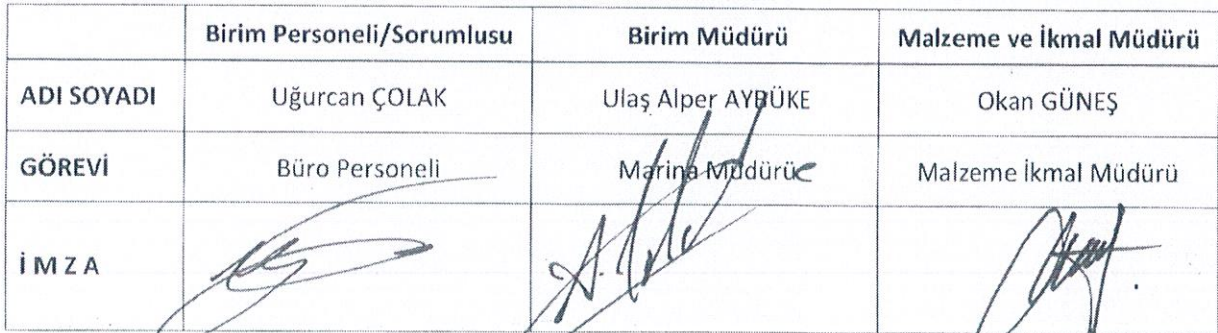 Birim Personeli/Sorumlusu Birim Müdürü Malzeme ve İkmal Müdürü
ADI SOYADI Uğurcan ÇOLAK Ulaş Alper AYBÜKE Okan GÜNEŞ
GÖREVİ Büro Personeli Marina Müdürü Malzeme İkmal Müdürü
İ M Z A